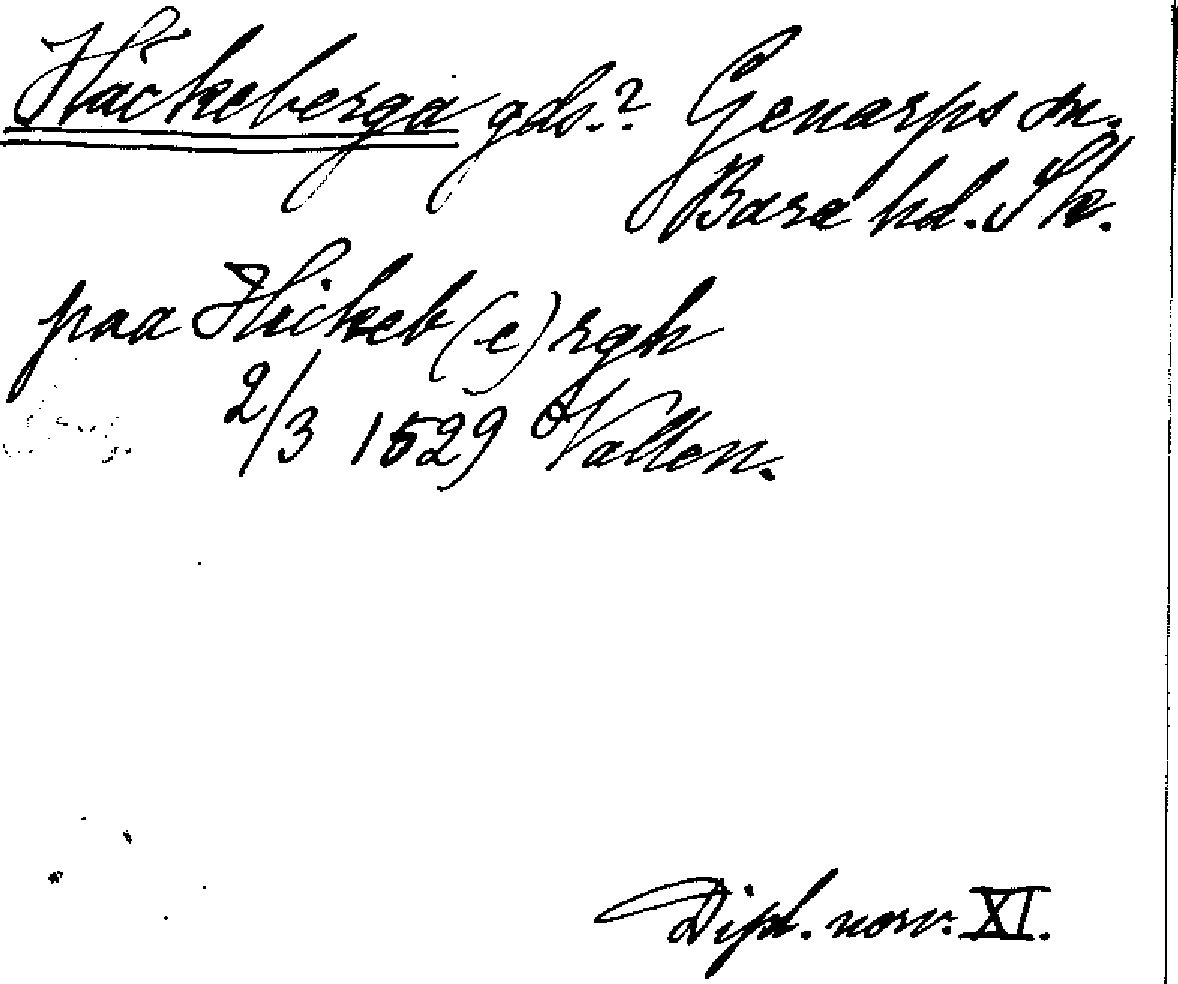 Häckeberga gds.? Genarps sn.
Bara hd. Sk.
paa Hickeb(e)rgh
2/3 1529 Valten.
Dipl. norv. XI.